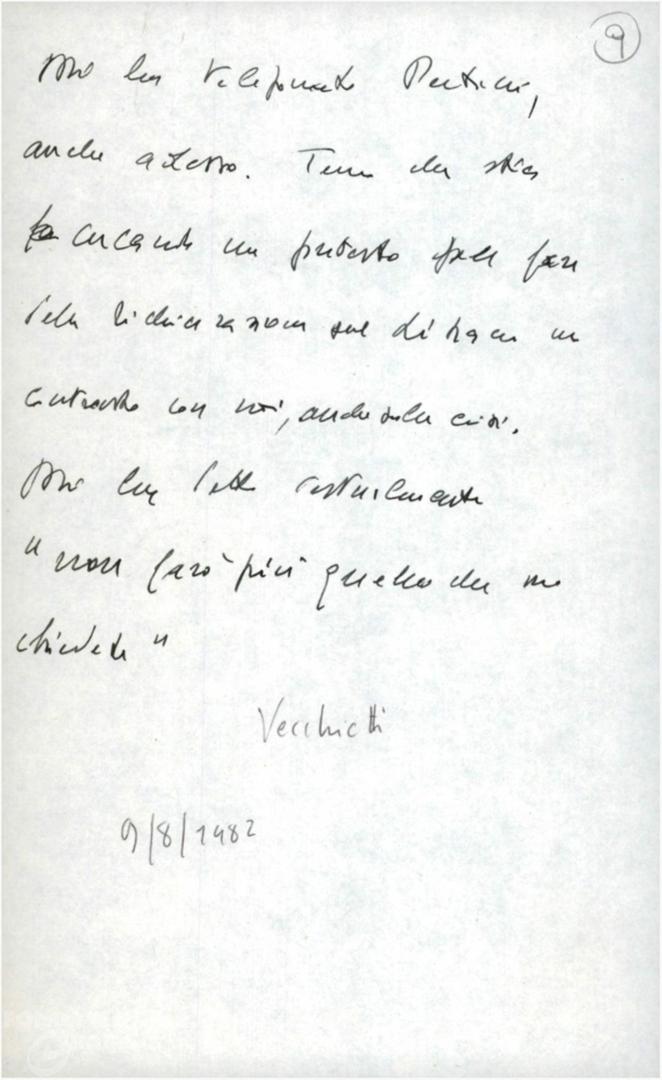 9
Mi ha telefonato Pertini,
anche adesso. Temo che stia
cercando un pretesto per fare
dichiarazioni in
contrasto con noi, anche sulla crisi.
Mi ha detto testualmente
"non farò più quello che me
chiedete"
Vecchietti
9/8/1982